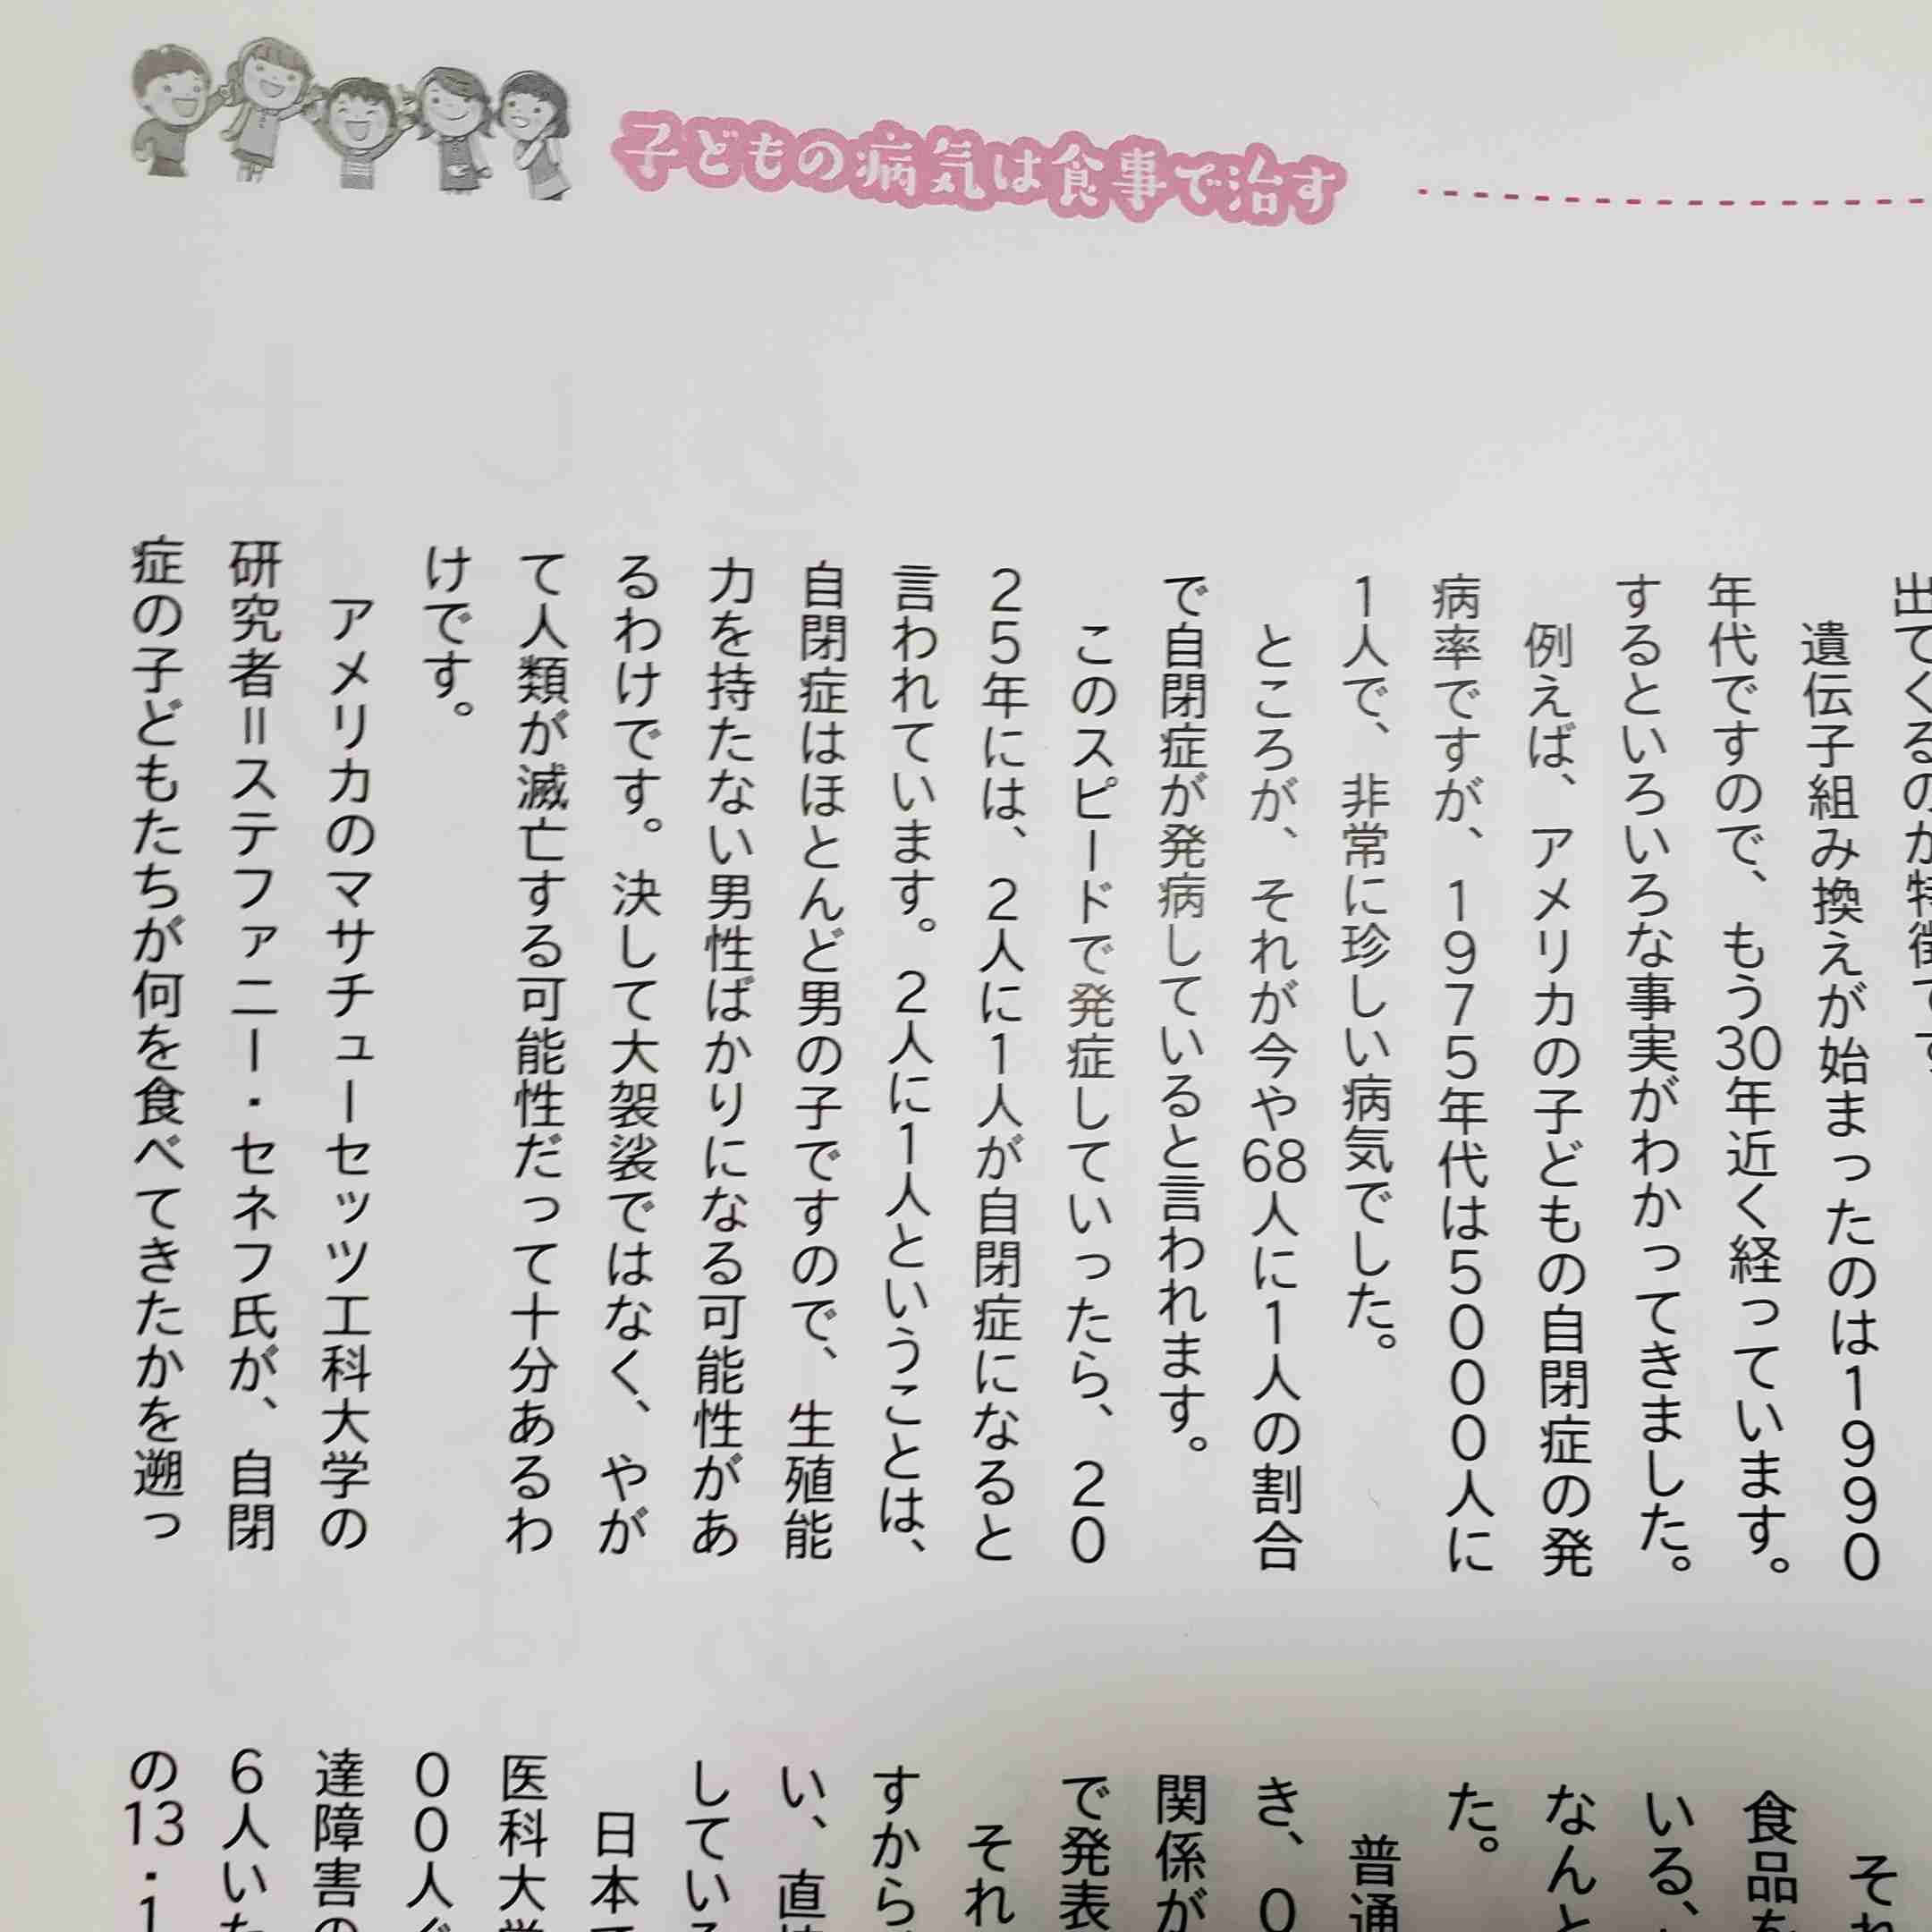 子どもの病気は食事で治す
出てくるのが特徴です
遺伝子組み換えが始まったのは1990
年代ですので、もう30年近く経っています。
するといろいろな事実がわかってきました。
例えば、アメリカの子どもの自閉症の発
病率ですが、1975年代は5000人に
1人で、非常に珍しい病気でした。
ところが、それが今や68人に1人の割合
で自閉症が発病していると言われます。
このスピードで発症していったら、20
25年には、2人に1人が自閉症になると
言われています。2人に1人ということは、
自閉症はほとんど男の子ですので、生殖能
力を持たない男性ばかりになる可能性があ
るわけです。決して大袈裟ではなく、やが
て人類が滅亡する可能性だって十分あるわ
けです。
アメリカのマサチューセッツ工科大学の
研究者＝ステファニー・セネフ氏が、自閉
症の子どもたちが何を食べてきたかを遡っ
それ
食品を
いる、
なんと
た。
普通
き、0
関係が
で発表
それ
すから
い、直
してい
日本で
医科大学
00人
達障害の
6人いた
の13・1